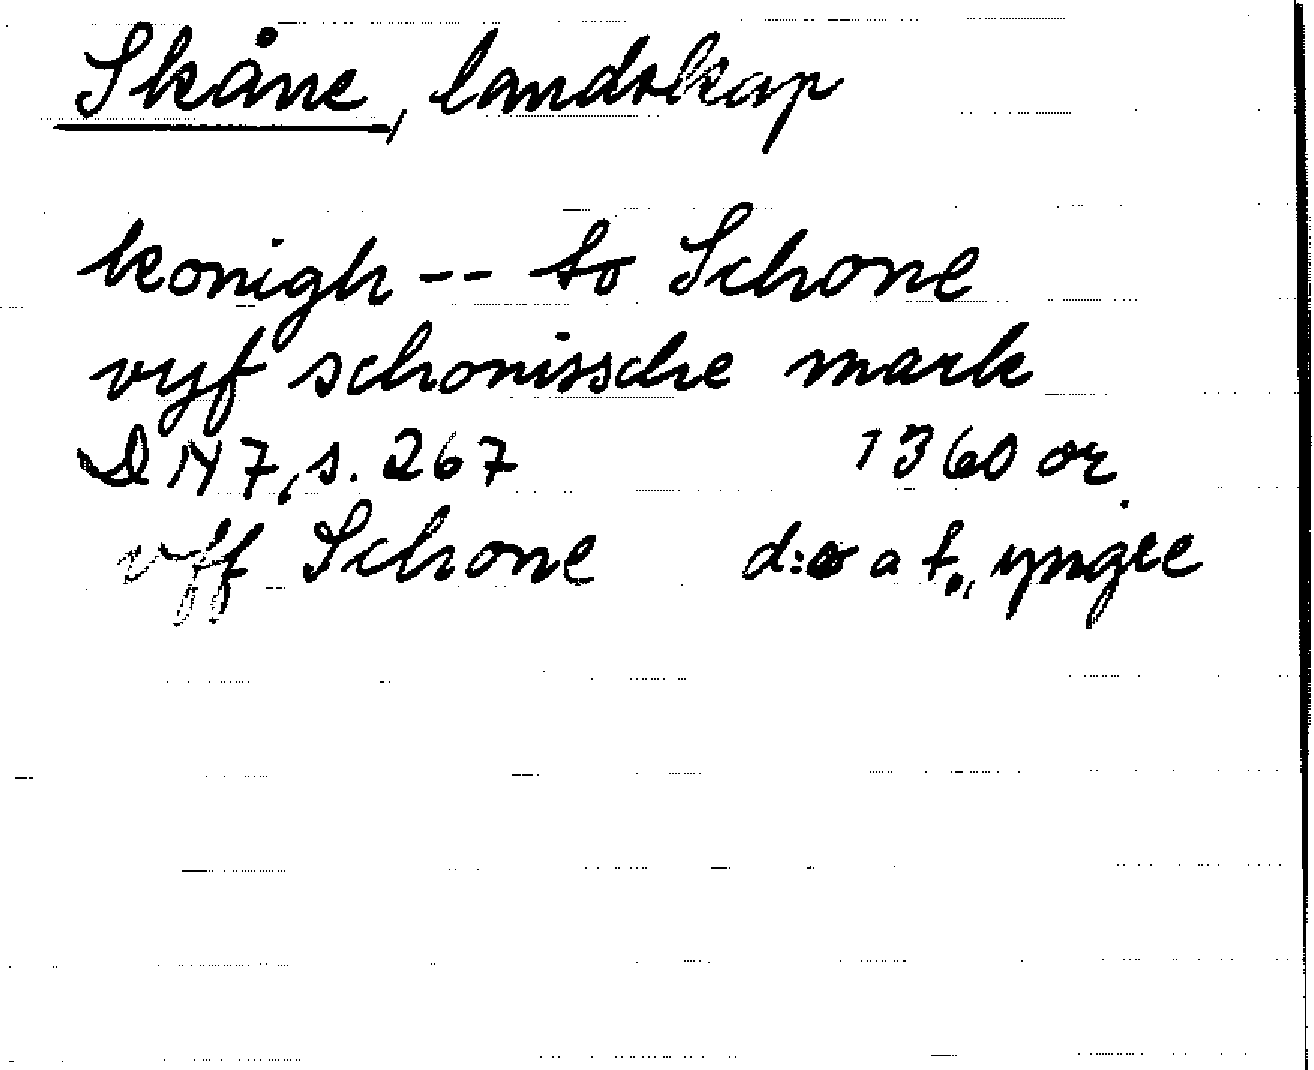 Skåne, landskap
konigh -- to Schone
vyf schonissche mark
DN 7, s. 267 1360 or.
vff Schone d:o at., yngre